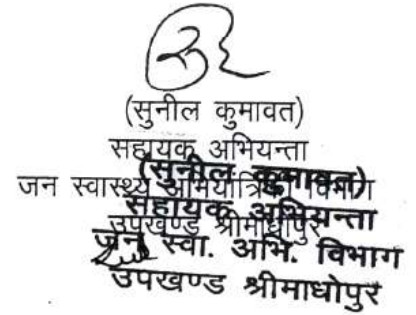 (सुनील कुमावत)
सहायक अभियन्ता
जन स्वास्थ्य अभियांत्रिकी विभाग
उपखण्ड श्रीमाधोपुर
(सुनील कुमावत)
सहायक अभियन्ता
जन स्वा. अभि. विभाग
उपखण्ड श्रीमाधोपुर